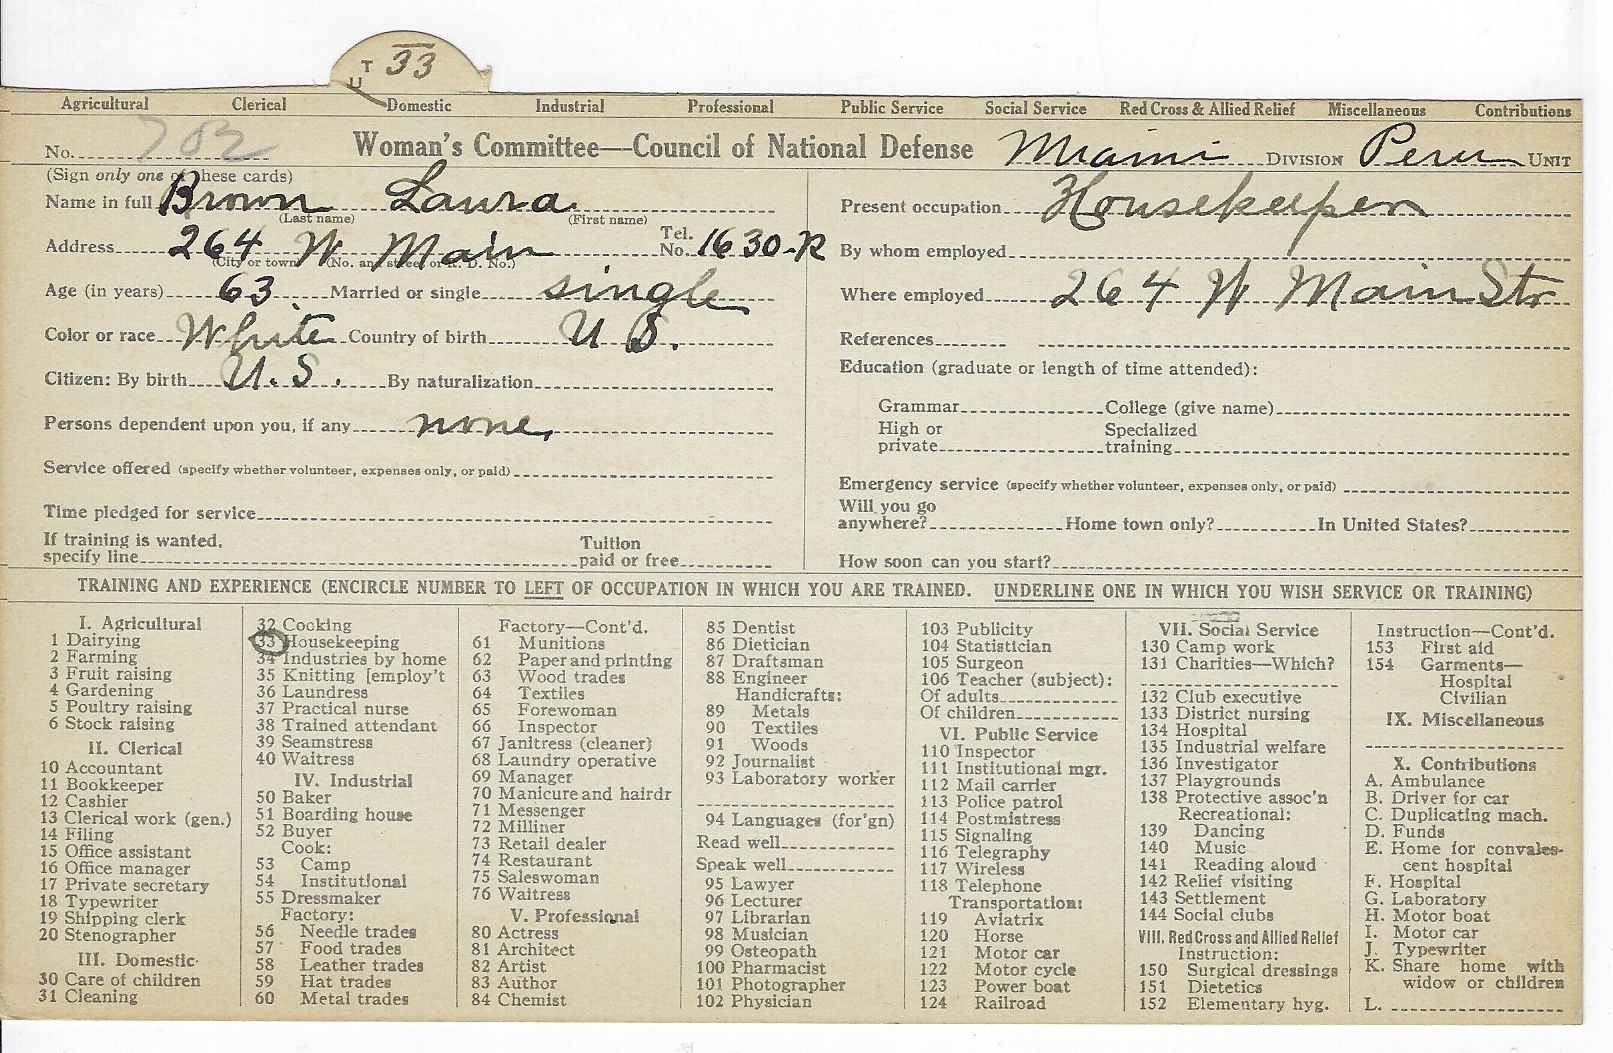 UT 33
Agricultural Clerical Domestic Industrial Professional Public Service Social Service Red Cross & Allied Relief Miscellaneous Contributions
No. 702 Woman's Committee—Council of National Defense Miami DIVISION Peru UNIT
(Sign only one of these cards)
Name in full Brown Laura
(Last name) (First name)
Address 264 W Main Tel. No. 1630-R
(City or town) (No. and street or R. D. No.)
Age (in years) 63. Married or single single
Color or race White Country of birth U S.
Citizen: By birth U.S. By naturalization
Persons dependent upon you, if any none,
Service offered (specify whether volunteer, expenses only, or paid)
Time pledged for service
If training is wanted, specify line Tuition paid or free
Present occupation Housekeeper
By whom employed
Where employed 264 W Main Str
References
Education (graduate or length of time attended):
Grammar College (give name)
High or private Specialized training
Emergency service (specify whether volunteer, expenses only, or paid)
Will you go anywhere? Home town only? In United States?
How soon can you start?
TRAINING AND EXPERIENCE (ENCIRCLE NUMBER TO LEFT OF OCCUPATION IN WHICH YOU ARE TRAINED. UNDERLINE ONE IN WHICH YOU WISH SERVICE OR TRAINING)
I. Agricultural
1 Dairying
2 Farming
3 Fruit raising
4 Gardening
5 Poultry raising
6 Stock raising
II. Clerical
10 Accountant
11 Bookkeeper
12 Cashier
13 Clerical work (gen.)
14 Filing
15 Office assistant
16 Office manager
17 Private secretary
18 Typewriter
19 Shipping clerk
20 Stenographer
III. Domestic
30 Care of children
31 Cleaning
32 Cooking
33 Housekeeping
34 Industries by home
35 Knitting [employ't
36 Laundress
37 Practical nurse
38 Trained attendant
39 Seamstress
40 Waitress
IV. Industrial
50 Baker
51 Boarding house
52 Buyer
Cook:
53 Camp
54 Institutional
55 Dressmaker
Factory:
56 Needle trades
57 Food trades
58 Leather trades
59 Hat trades
60 Metal trades
Factory—Cont'd.
61 Munitions
62 Paper and printing
63 Wood trades
64 Textiles
65 Forewoman
66 Inspector
67 Janitress (cleaner)
68 Laundry operative
69 Manager
70 Manicure and hairdr
71 Messenger
72 Milliner
73 Retail dealer
74 Restaurant
75 Saleswoman
76 Waitress
V. Professional
80 Actress
81 Architect
82 Artist
83 Author
84 Chemist
85 Dentist
86 Dietician
87 Draftsman
88 Engineer
Handicrafts:
89 Metals
90 Textiles
91 Woods
92 Journalist
93 Laboratory worker
94 Languages (for'gn)
Read well
Speak well
95 Lawyer
96 Lecturer
97 Librarian
98 Musician
99 Osteopath
100 Pharmacist
101 Photographer
102 Physician
103 Publicity
104 Statistician
105 Surgeon
106 Teacher (subject):
Of adults
Of children
VI. Public Service
110 Inspector
111 Institutional mgr.
112 Mail carrier
113 Police patrol
114 Postmistress
115 Signaling
116 Telegraphy
117 Wireless
118 Telephone
Transportation:
119 Aviatrix
120 Horse
121 Motor car
122 Motor cycle
123 Power boat
124 Railroad
VII. Social Service
130 Camp work
131 Charities—Which?
132 Club executive
133 District nursing
134 Hospital
135 Industrial welfare
136 Investigator
137 Playgrounds
138 Protective assoc'n
Recreational:
139 Dancing
140 Music
141 Reading aloud
142 Relief visiting
143 Settlement
144 Social clubs
VIII. Red Cross and Allied Relief
Instruction:
150 Surgical dressings
151 Dietetics
152 Elementary hyg.
Instruction—Cont'd.
153 First aid
154 Garments—
Hospital
Civilian
IX. Miscellaneous
X. Contributions
A. Ambulance
B. Driver for car
C. Duplicating mach.
D. Funds
E. Home for convales-
cent hospital
F. Hospital
G. Laboratory
H. Motor boat
I. Motor car
J. Typewriter
K. Share home with
widow or children
L.